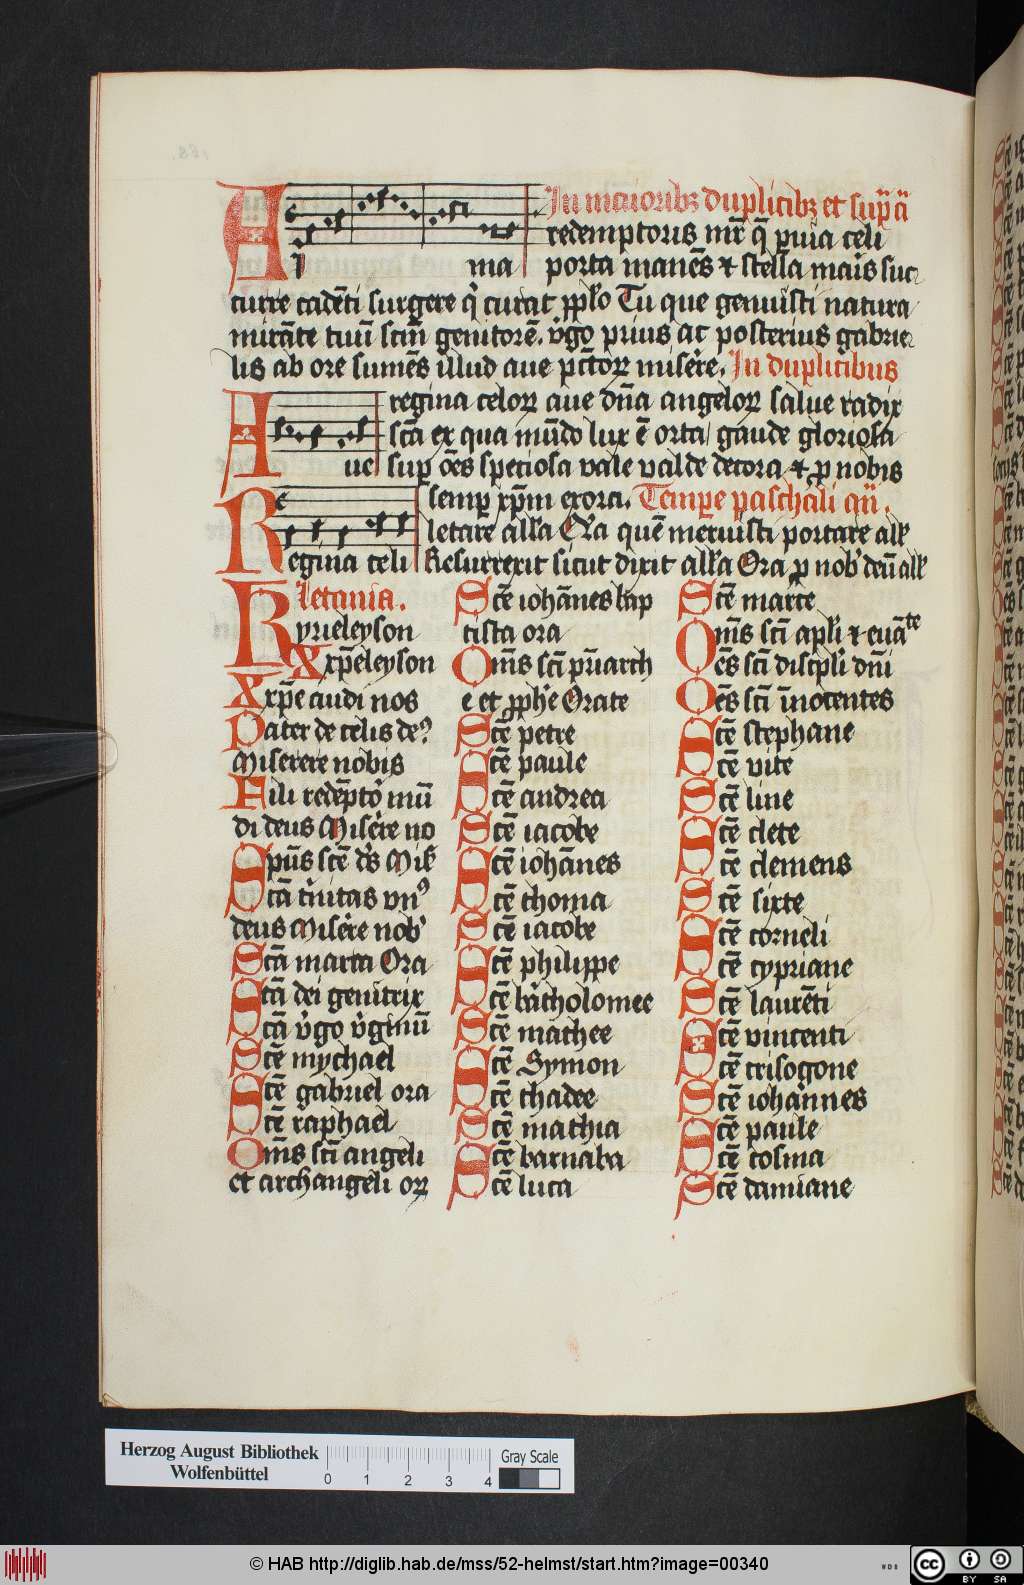 In maioribꝫ duplicibꝫ et sup̄ a
redemptoris mr̄ q̄ p̱uia celi
A l ma porta manēs ⁊ stella maris suc
curre cadēti surgere q̇ curat pp̱lo Tu que genuisti natura
mirāte tuū scm̄ genitorē. v̇go prius ac posterius gabrie
lis ab ore sumēs illud aue pctōꝝ miserē. In duplicibus
regina celoꝝ aue dn̄a angeloꝝ salue radix
scā ex qua mūdo lux ē orta gaude gloriosa
A ue sup̱ oēs speciosa vale valde decora ⁊ p̱ nobis
semp̱ xp̄m exora. Tempe paschali an̄.
letare all'a Q'a quē meruisti portare all'
Regina celi Resurrexit sicut dixit all'a Ora p̱ nob' deū all'
Letania.
Kyrieleyson
Xxp̄eleyson
Xxp̄e audi nos
Pater de celis deꝰ
Miserere nobis
Fili redēptor mū
di deus Miserē no
Spūs scē ds̄ Mis̄
Scā trinitas vnꝰ
deus Miserē nob'
Scā maria Ora
Scā dei genitrix
Scā v̇go v̇ginū
Scē mychael
Scē gabriel ora
Scē raphael
Om̄s sci angeli
et archangeli oꝝ
Scē iohānes bap
tista ora
Om̄s scī pr̄iarch
e et pp̱he Orate
Scē petre
Scē paule
Scē andrea
Scē iacobe
Scē iohānes
Scē thoma
Scē iacobe
Scē philippe
Scē bartholomee
Scē mathee
Scē Symon
Scē thadee
Scē mathia
Scē barnaba
Scē luca
Scē marce
Om̄s scī apl̄i ⁊ euāte
Oēs scī discipl̄i dn̄i
Oēs scī īnocentes
Scē stephane
Scē vite
Scē line
Scē clete
Scē clemens
Scē sixte
Scē corneli
Scē cypriane
Scē laurēti
Scē vincenti
Scē crisogone
Scē iohannes
Scē paule
Scē cosma
Scē damiane
Herzog August Bibliothek
Wolfenbüttel
0 1 2 3 4
Gray Scale
© HAB http://diglib.hab.de/mss/52-helmst/start.htm?image=00340
cc BY SA